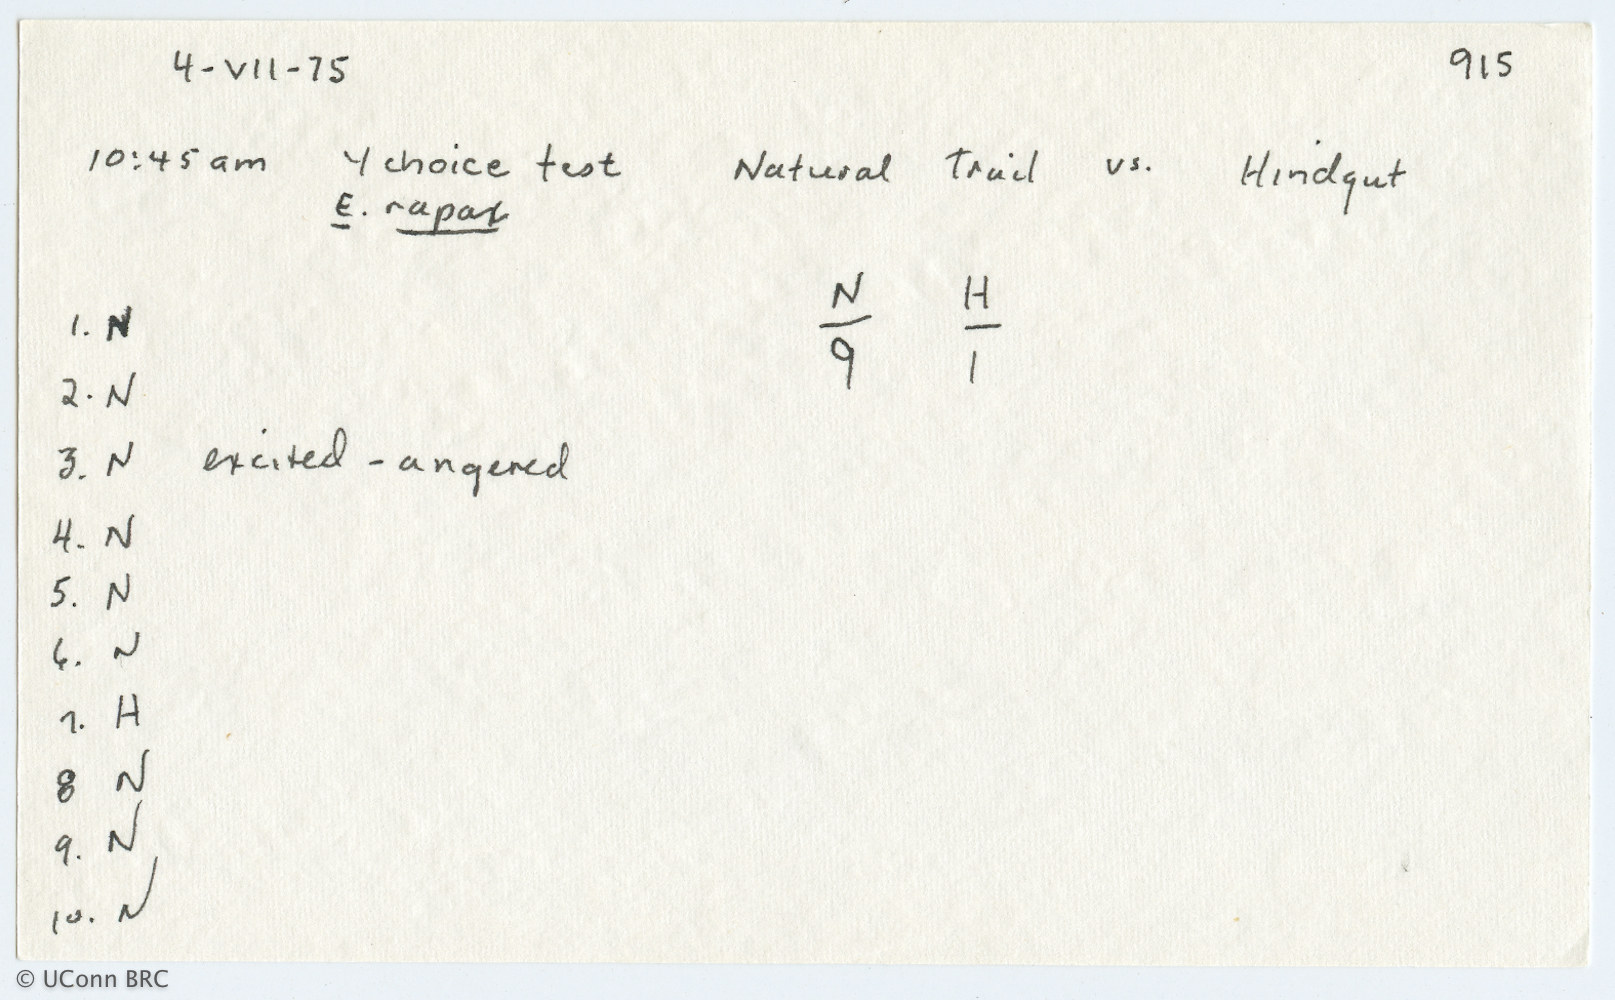 4-VII-75 915
10:45 am Y choice test Natural Trail vs. Hindgut
E. rapax
N H
9 1
1. N
2. N
3. N excited - angered
4. N
5. N
6. N
7. H
8 N
9. N
10. N
© UConn BRC